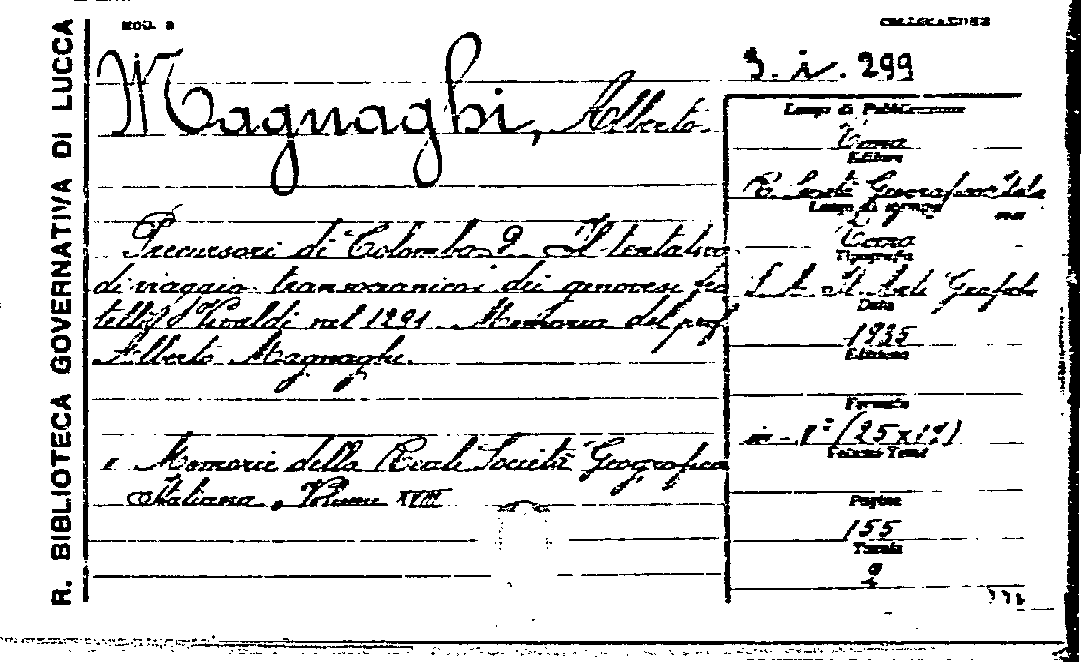 R. BIBLIOTECA GOVERNATIVA DI LUCCA
MOD. 2
COLLOCAZIONE
Magnaghi, Alberto.
3. i. 299
Luogo di Pubblicazione
Roma
Editore
R. Società Geografica Itali
Luogo di stampa
ana
Roma
Tipografia
S. A. It. Arti Grafiche
Data
1935
Edizione
Formato
in - 8º (25x17)
Pagine
155
Tavole
Precursori di Colombo? Il tentativo
di viaggio transoceanico dei genovesi fra
telli Vivaldi nel 1291. Memoria del prof.
Alberto Magnaghi.
Memorie della Reale Società Geografica
Italiana, Volume XVIII